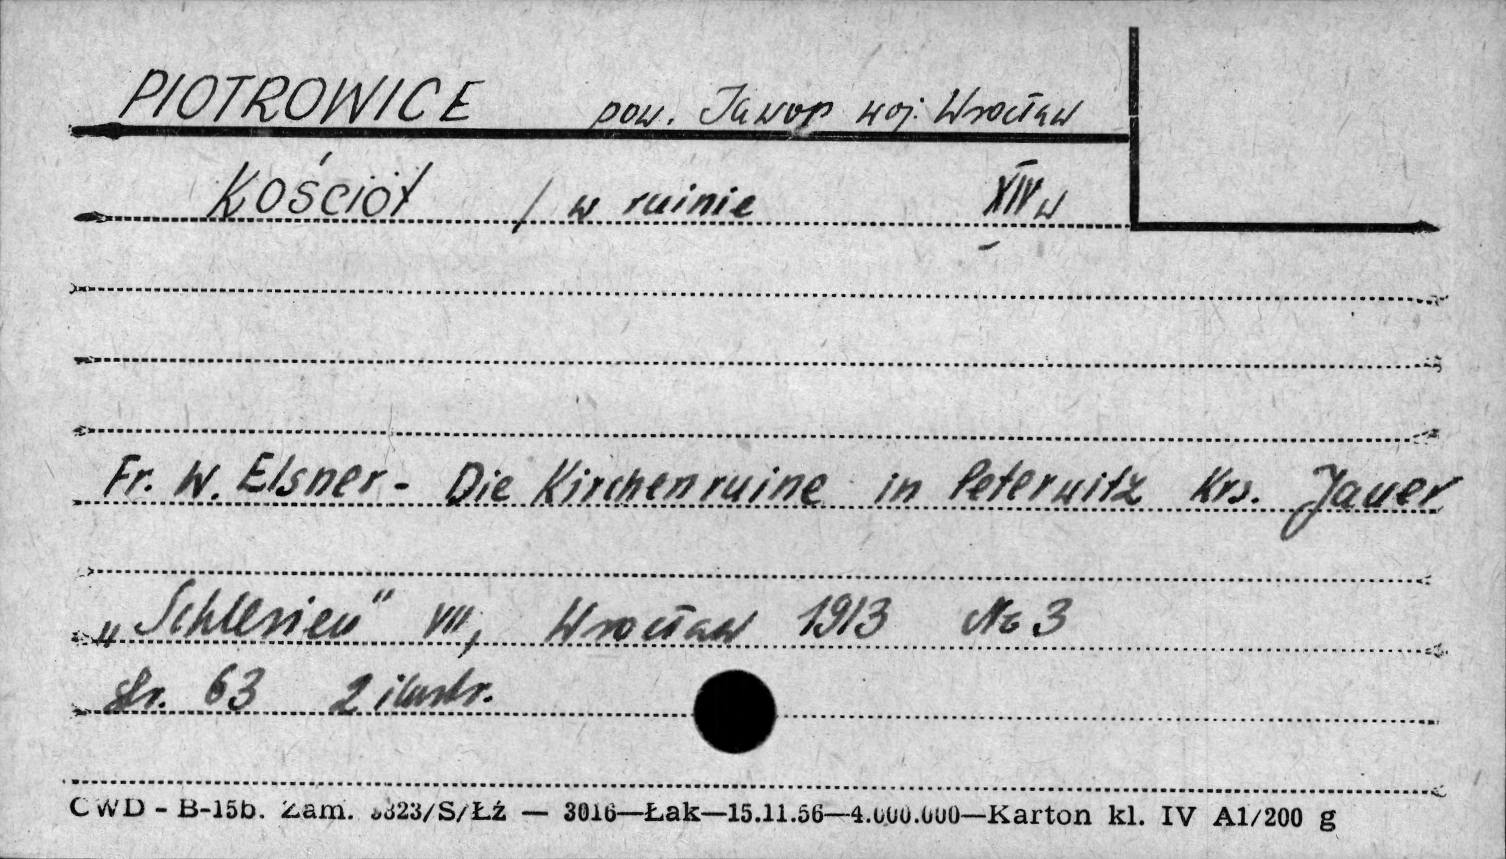 PIOTROWICE pow. Jawor woj. Wrocław
Kościół / w ruinie XIV w
Fr. W. Elsner - Die Kirchenruine in Peterwitz Krs. Jauer
„Schlesien" VII, Wrocław 1913 No 3
str. 63 2 ilustr.
CWD - B-15b. Zam. 3323/S/Łź — 3016—Łak—15.11.56—4.000.000—Karton kl. IV A1/200 g